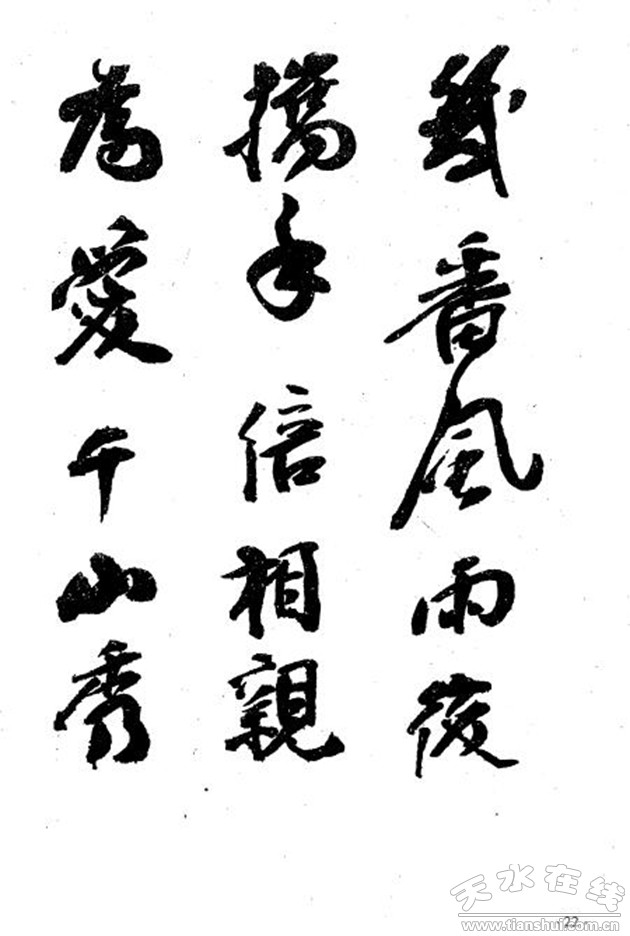 幾番風雨後
攜手倍相親
為愛千山秀
天水在线
www.tianshui.com.cn
22